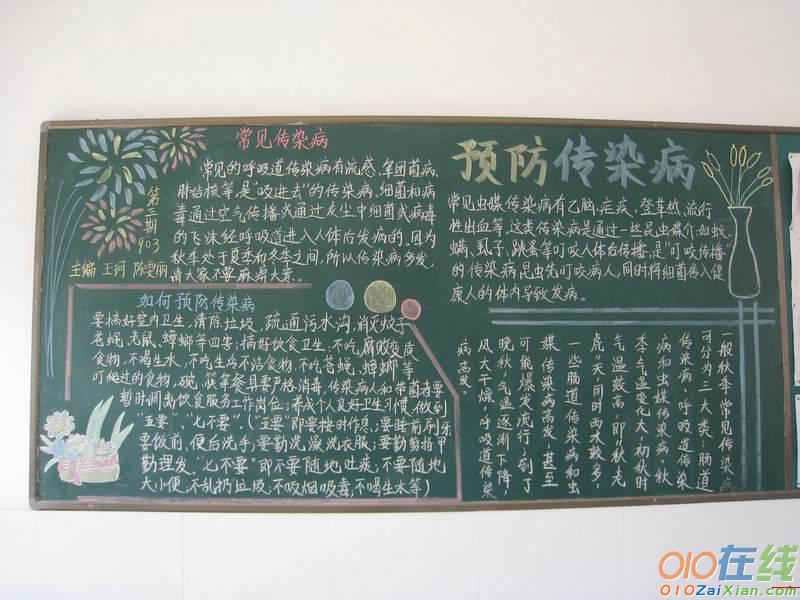 常见传染病
常见的呼吸道传染病有流感、军团菌病、
肺结核等是"吸进去"的传染病、细菌和病
毒通过空气传播或通过灰尘中细菌或病毒
的飞沫经呼吸道进入人体后发病的、因为
秋季处于夏季和冬季之间,所以传染病多发,
请大家不要麻痹大意。
第三期
903
主编 王珂 陈雯丽
预防传染病
常见虫媒传染病有乙脑、疟疾、登革热、流行
性出血等,这类传染病是通过一些昆虫媒介如蚊、
螨、虱子、跳蚤等叮咬人体后传播,是"叮咬传播"
的传染病昆虫先叮咬病人,同时将细菌传入健
康人的体内导致发病。
如何预防传染病
要搞好室内卫生,清除垃圾,疏通污水沟,消灭蚊子
苍蝇、老鼠、蟑螂等四害;搞好饮食卫生、不吃腐败变质
食物,不喝生水,不吃生冷不洁食物,不吃苍蝇、蟑螂等
叮爬过的食物,碗、筷等餐具要严格消毒,传染病人和带菌者要
暂时调离饮食服务工作岗位;养成个人良好卫生习惯,做到
"五要"、"七不要"。("五要"即要按时作息,要睡前刷牙
要饭前、便后洗手,要勤洗澡洗衣服;要勤剪指甲
勤理发、"七不要"即不要随地吐痰,不要随地
大小便,不乱扔垃圾,不吸烟吸毒,不喝生水等)
一般秋季常见传染病
可分为三大类:肠道
传染病、呼吸道传染
病和虫媒传染病、秋
季气温变化大,初秋时
气温较高,即"秋老
虎"天,同时雨水较多,
一些肠道传染病和虫
媒传染病高发、甚至
可能爆发流行;到了
晚秋,气温逐渐下降,
风大干燥,呼吸道传染
病高发。
010在线
010ZaiXian.com